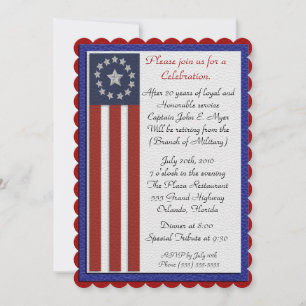 Please join us for a
Celebration.
After 20 years of loyal and
Honorable service
Captain John E. Myer
Will be retiring from the
(Branch of Military)
July 20th, 2010
7 o'clock in the evening
The Plaza Restaurant
555 Grand Highway
Orlando, Florida
Dinner at 8:00
Special Tribute at 9:30
RSVP by July 10th
Phone (555) 555-5555